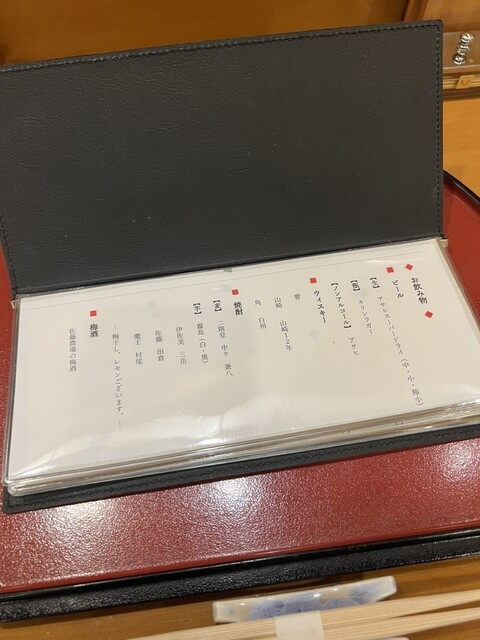 お飲み物
ビール
【生】 アサヒスーパードライ (中・小・極小)
【瓶】 キリンラガー
【ノンアルコール】 アサヒ
ウィスキー
響
山崎 山崎12年
角 白州
焼酎
【麦】 二階堂 中々 兼八
【芋】 霧島(白・黒)
伊佐美 三岳
佐藤 田倉
魔王 村尾
―梅干し、レモンございます。―
梅酒
佐藤農場の梅酒